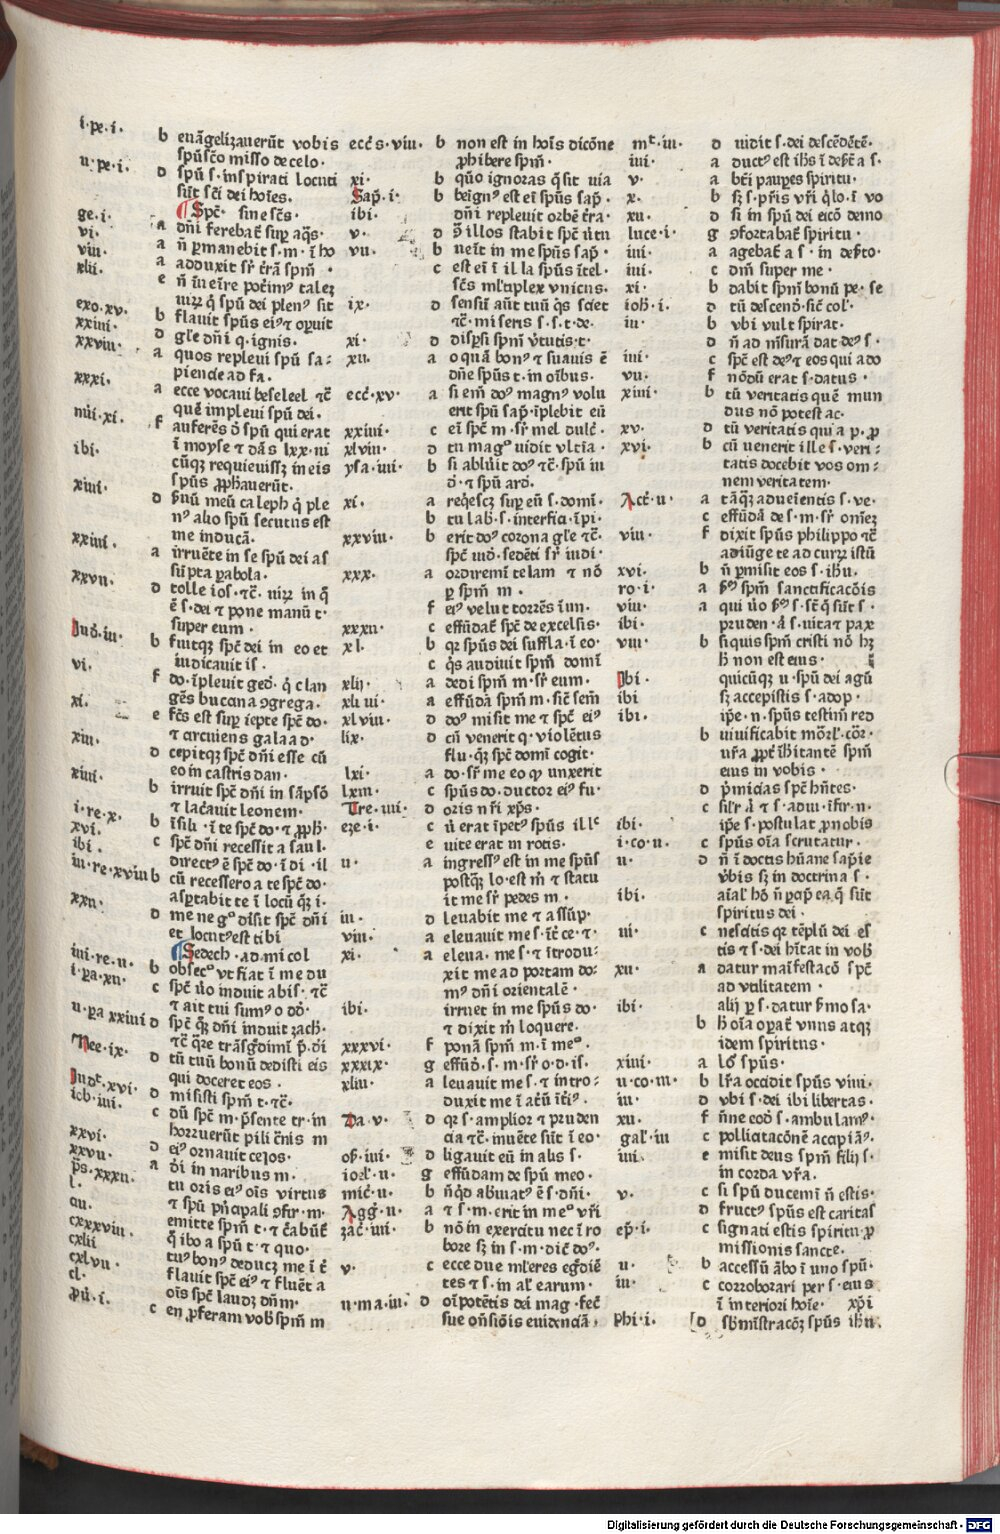 i·pe·i· b euāgelizauerūt vobis
spūscō misso de celo·
ii·pe·i· d spū s·inspirati locuti
sūt scī dei hoīes.
Spc̄· sine scs̄·
ge·i· a dn̄i ferebat̄ sup̄ aq̄s·
vi· a n̄ ꝑmanebit s·m·ī ho
viii· a adduxit sr̄ tr̄ā spm̄·
xlii· e n̄ īueīre poterim⁹ talez
uirz q̇ spū dei plen⁹ sit
exo·xv· b flauit spūs ei⁹ ⁊ oꝑuit
xxiiii· d gle dn̄i q·ignis·
xxviii· a quos repleui spū sa⸗
piencie ad fa·
xxxi· a ecce vocaui beseleel ⁊c̄
quē impleui spū dei·
nūi·xi· f auferēs d̄ spū qui erat
ī moyse ⁊ dās lxx·ui
ibi· cūqꝫ requieuissꝫ in eis
spūs ꝓpħauerūt·
xiiii· d ẜuū meū caleph q̇ ple
n⁹ alio spū secutus est
me inducā·
xxiiii· a irruēte in se spū dei as
sūpta ꝑabola·
xxvii· d tolle ios·⁊c̄· uirꝫ in q̄
ē s·dei ⁊ pone manū t·
super eum·
Iud·iii· b fuitqꝫ spc̄ dei in eo et
iudicauit is·
vi· f do·īpleuit ged· q̇ clan
gēs bucana ꝯgrega·
xi· e fc̄s est sup̄ iepte spc̄ do·
⁊ circuiens galaad·
xiii· d cepitqꝫ spc̄ dn̄i esse cū
eo in castris dan·
xiiii· b irruit spc̄ dn̄i in sāpsō
⁊ lac̄auit leonem·
i·re·x· b īsili·ī te spc̄ do·⁊ ꝓph·
xvi· c spc̄ dn̄i recessit a saul·
ibi· direct⁹ ē spc̄ do·ī di·il
iii·re·xviii b cū recessero a te spc̄ do·
asꝑtabit te ī locū qꝫ i·
xxii· d me neg⁰ dīsit spc̄ dn̄i
et locut⁹ est tibi
Sedech·ad·micol
iiii·re·ii· b obsec⁰ vt fiat ī me du
i·pa·xii· c spc̄ ūo induit abis·⁊c̄
⁊ ait tui sum⁹ o dd̄·
ii·pa xxiiii d spc̄ qꝫ dn̄i induit zach·
⁊c̄ q̄re trāsgdimī p̄·dī
Nee·ix· d tū tuū bonū dedisti eis
qui doceret eos·
Iudt·xvi· d misisti spm̄ t·⁊c̄·
iob·iiii· c dū spc̄ m·p̄sente tr·in
horruerūt pili c̄nis m
xxvi· d ei⁹ ornauit celos·
xxvii· a d̄i in naribus m·
ps̄·xxxii· tu oris ei⁹ oīs virtus
l· ⁊ spū pn̄cipali ꝯfir·m·
ciii· emitte spm̄ t·⁊ c̄abūt̄
cxxxviii· q̄ ibo a spū t·⁊ quo·
cxlii tu⁹ bon⁹ deducꝫ me ī t̄
cxlvii· flauit spc̄ ei⁹ ⁊ fluēt a
cl· oīs spc̄ laudꝫ dn̄m·
pū·i· c en ꝓferam vob̄ spm̄ m
ecc̄s·viii· b non est in hoīs dicōne
ꝓhibere spm̄·
xi· b quō ignoras q̄ sit uia
Sap̄·i· b beign⁹ est eī spūs sap̄·
ibi· dn̄i repleuit orbē t̄ra·
v· d ꝯ illos stabit spc̄ ūtu
vii· b ueīt in me spūs sap̄·
c est eī ī illa spūs ītel·
sc̄s ml̄tiplex vnicus·
ix· d sensū aūt tuū q̇s sciet
⁊c̄·miseris s·s·t·de·
xi· d disꝑsi spm̄ v̄tutis·t·
xii· a o quā bon⁹ ⁊ suauis ē
dn̄e spūs t·in oībus·
ecc̄·xv· a si em̄ do⁹ magn⁹ volu
erit spū sap̄·īplebit eū
xxiiii· c eī spc̄ m·sr̄ mel dulc̄·
xlviii· d tu mag⁰ uidit vltīa·
ysa·iiii· b si abluīt do⁹ ⁊c̄·spū iu
d̄·⁊ spū ard·
xi· a reqēscꝫ sup̄ eū s·domī·
b tu lab̄·s·interfic·īpi·
xxviii· b erit do⁹ corona gle ⁊c̄·
spc̄ iud̄·sedēti sr̄ iudi·
xxx· a ordiremī telam ⁊ nō
ꝑ spm̄ m·
f ei⁹ velut torrēs īun·
xxxii· c effūdat̄ spc̄ de excelsis·
xl· b qꝛ spūs dei suffla·ī eo·
c q̇s audiuit spm̄ domī
xlij· a dedi spm̄ m·sr̄ eum·
xliiii· a effūdā spm̄ m·sic̄ sem̄
xlviii· d do⁹ misit me ⁊ spc̄ ei⁹
lix· d cū venerit q·violētus
flu·qꝫ spc̄ domī cogit·
lxi· a do·sr̄ me eo ꝙ unxerit
lxiii· c spūs do·ductor ei⁹ fu·
Tre·iiii· d oris nr̄i xp̄s·
eze·i· c ū erat īpet⁹ spūs illᶜ
e uite erat in rotis·
ii· a ingress⁹ est in me spūs
postqꝫ lo·est m̄ ⁊ statu
it me sr̄ pedes m·
iii· d leuabit me ⁊ assūp·
viii· a eleuauit me s·īt̄ ce·⁊·
xi· a eleua·me s·⁊ ītrodu⸗
xit me ad portam do⸗
m⁹ dn̄i orientalē·
ibi· irruet in me spūs do·
⁊ dixit m̄ loquere·
xxxvi· f ponā spm̄ m·ī me⁰·
xxxix· g effūd·s·m·sr̄ o·d·is·
xliii· a leuauit me s·⁊ intro⸗
duxit me ī at̄ū īti⁹·
Da·v· d qꝛ s·amplior ⁊ pruden
cia ⁊c̄·inuēte sūt ī eo·
os̄·iiii· d ligauit eū in alis s·
iohl̄·ii· g effūdam de spū meo·
mic̄·ii· b nūqd abūiat⁹ ē s·dn̄i·
Agḡ·ii· a ⁊ s·m·erit in me⁰ vr̄i
zac̄·iiii· b nō in exercitu nec ī ro
bore sꝫ in s·m·dic̄ do⁹·
v· c ecce due ml̄eres egdiē
tes ⁊ s·in al̄ earum·
ii·ma·iii· d oīpotētis dei mag·fec̄
sue on̄siōis euidenciā,
mᵗ·iii· d uidit s·dei descēdētē·
iiii· a duct⁹ est ih̄s ī deẜt̄ a s·
v· a bt̄i paupes spiritu·
x· b sꝫ s·pr̄is vr̄i q̇lo·ī vo
xii· d si in spū dei eicō demo
luce·i· g ꝯfortabat̄ spiritu·
iiii· a agebat̄ a s·in deẜto·
iiii· c dn̄i super me·
xi· b dabit spm̄ bonū pe·se
ioh̄·i· d tū descend·sic̄ col̄·
iii· b vbi vult spirat·
d n̄ ad m̄surā dat de⁹ s·
iiii· c spc̄ est de⁹ ⁊ eos qui ado
vii· f nōdū erat s·datus·
xiiii· b tū veritatis quē mun
dus nō potest ac·
xv· d tū veritatis qui a p·ꝓ
xvi· b cū uenerit ille s·veri⸗
tatis docebit vos om⸗
nem veritatem·
Act̄·ii· a tāqꝫ adueīentis s·ve·
c effūdā de s·m·sr̄ om̄eꝫ
viii· f dixit spūs philippo ⁊c̄
adiūge te ad currꝫ istū
xvi· b n̄ ꝑmisit eos s·ih̄u·
ro·i· a ẜm spm̄ sanctificacōis
viii· a qui ūo ẜm s·sc̄ q̄ sūt s·
ibi· pruden·ā s·uita ⁊ pax
viii· b si quis spm̄ cristi nō hꝫ
h̄ non est eius·
Ibi· quicūqꝫ ii·spū dei agū
ibi sꝫ accepistis s·adop·
ibi· ip̄e·n·spūs testim̄ red
b uiuificabit mōrl̄·cōr·
ur̄a ꝓpt̄ īh̄itantē spm̄
eius in vobis·
d pmicias spc̄ hn̄tes·
c silr̄ ā ⁊ s·adiu·īfir·n·
ibi· ip̄e s·postulat ꝓnobis
i·co·ii· c spūs oīa scrutatur·
ii· d n̄ ī doctis hūane sapīe
v̄bis sꝫ in doctrina s·
ibi· aīal̄ hō n̄ ꝑcip̄ ea q̄ sūt
spiritus dei·
iii· c nescitis qꝛ tēplū dei es
tis ⁊ s·dei hītat in vob̄
xii· a datur maīfestacō spc̄
ad vtilitatem·
ibi· alij ꝑ s·datur ẜmo sa·
b h̄ oīa oꝑat̄ vnus atqꝫ
idem spiritus·
xiiii· a loq̄ spūs·
ii·co·iii· b lr̄a occidit spūs viui·
iii· d vbi s·dei ibi libertas·
xii· f n̄ne eod s·ambulam⁹·
gal̄·iii c pollicitacōnē accapiā⁹·
iiii· e misit deus spm̄ filij s·
in corda vr̄a·
v· c si spū ducemī n̄ estis·
d fruct⁹ spūs est caritas
ep̄·i· c signati estis spiritu ꝓ
missionis sancte·
ii· b accessū ābo ī uno spū·
iii· c corroborari per s·eius
ī interiori hoīe· xp̄i
phi·i· d sbm̄istracōꝫ spūs ih̄u·
Digitalisierung gefördert durch die Deutsche Forschungsgemeinschaft - DFG